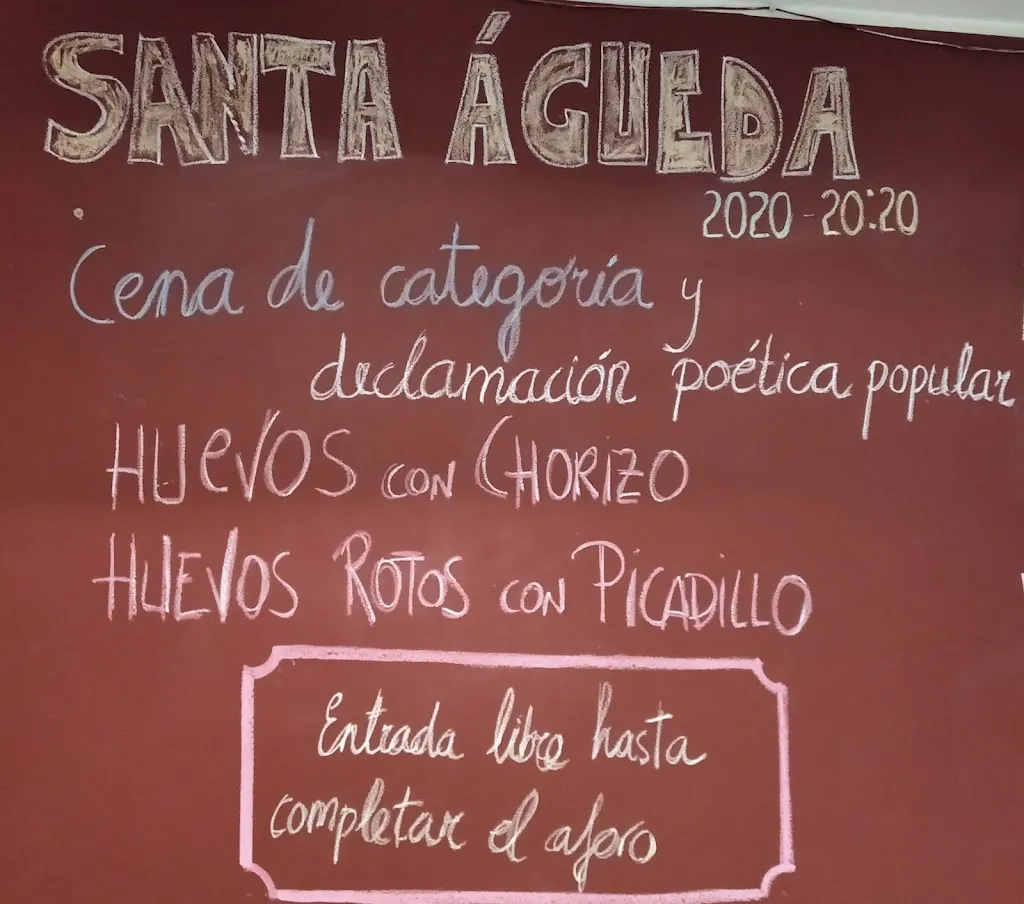 SANTA ÁGUEDA
2020 - 20:20
Cena de categoría y
declamación poética popular
HUevOS CON CHORIZO
HUEVOS ROTOS CON PICADILLO
Entrada libre hasta
completar el aforo